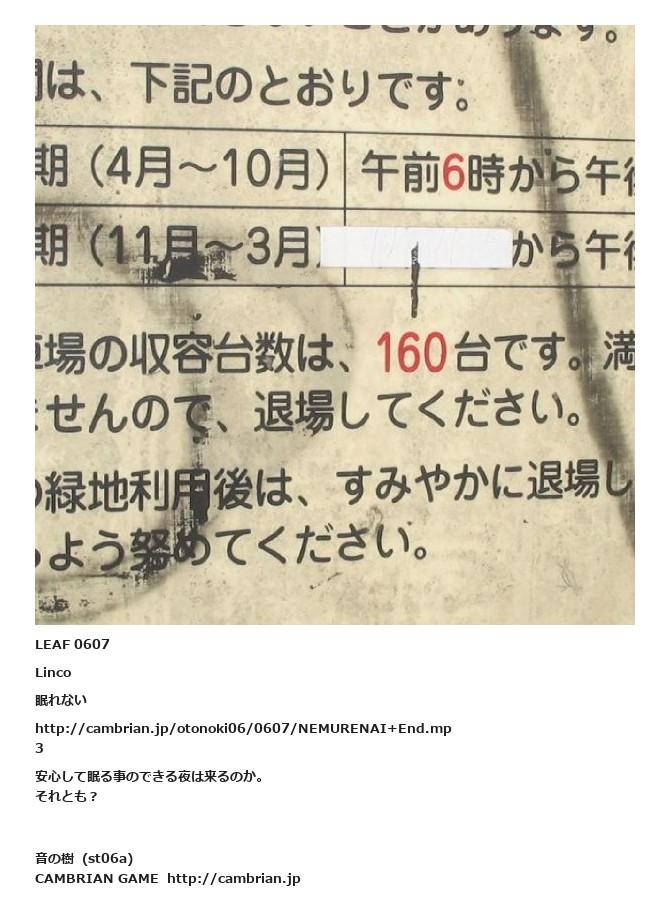 間は、下記のとおりです。
期（4月～10月） 午前6時から午後
期（11月～3月） から午後
車場の収容台数は、160台です。満
ませんので、退場してください。
の緑地利用後は、すみやかに退場し
るよう努めてください。
LEAF 0607
Linco
眠れない
http://cambrian.jp/otonoki06/0607/NEMURENAI+End.mp
3
安心して眠る事のできる夜は来るのか。
それとも？
音の樹 (st06a)
CAMBRIAN GAME http://cambrian.jp